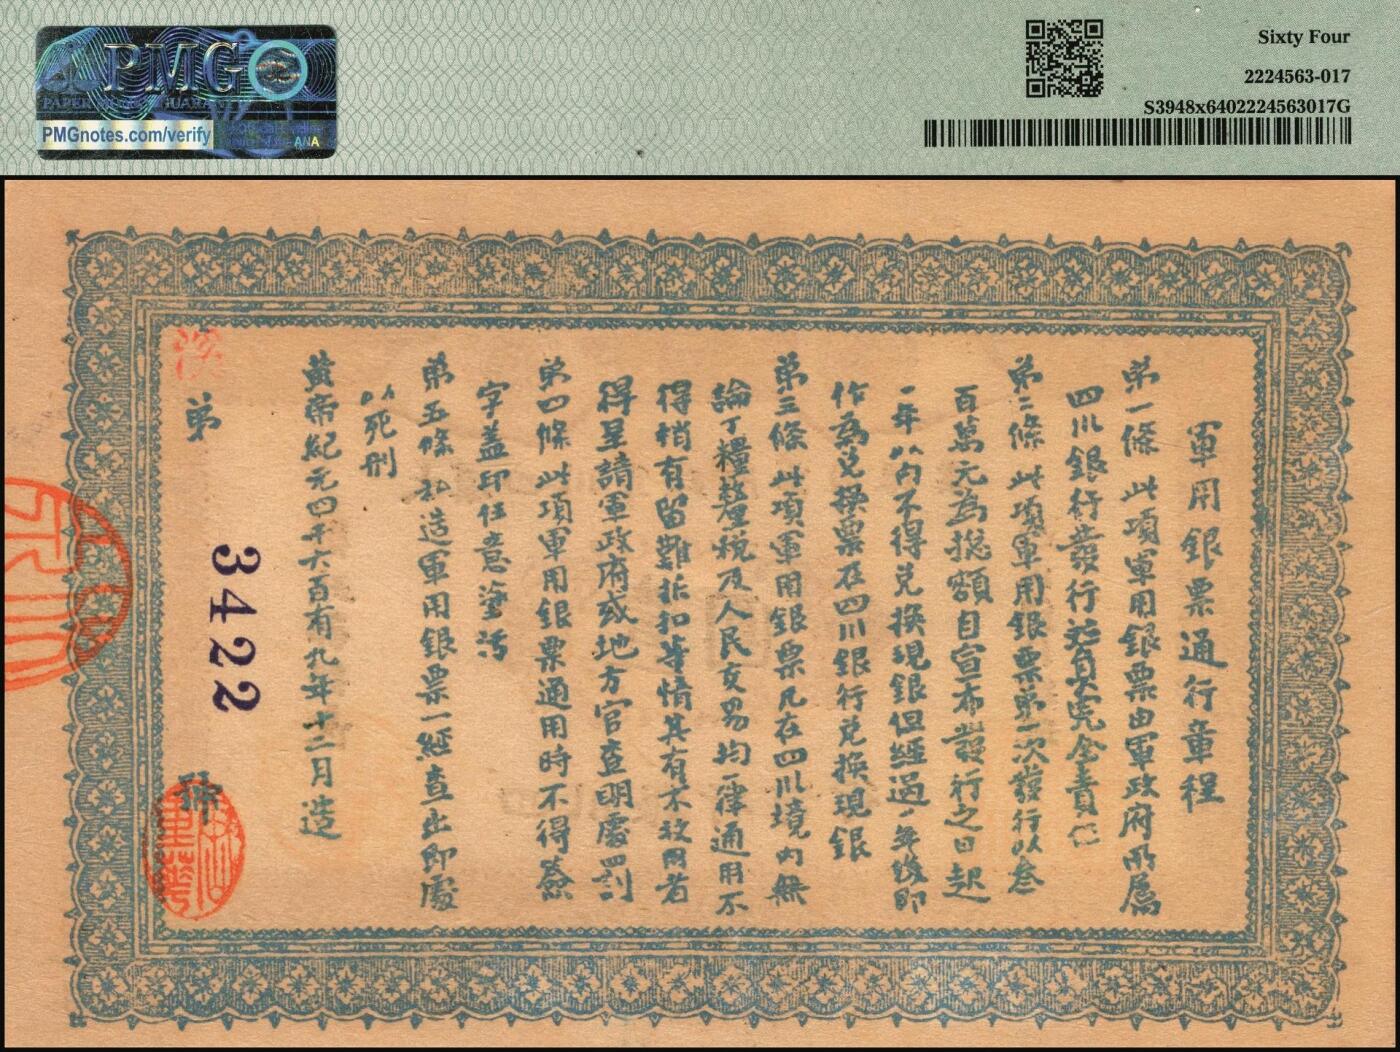 PMG
PAPER MONEY GUARANTY
PMGnotes.com/verify
ANA
Sixty Four
2224563-017
S3948x6402224563017G
軍用銀票通行章程
第一條 此項軍用銀票由軍政府所屬
四川銀行發行並負完全責任
第二條 此項軍用銀票第一次發行以叁
百萬元為總額自宣布發行之日起
一年以內不得兌換現銀但經過一年後即
作為兌換票在四川銀行兌換現銀
第三條 此項軍用銀票凡在四川境內無
論丁糧釐稅及人民交易均一律通用不
得稍有留難折扣等情其有不收用者
得呈請軍政府或地方官查明處罰
第四條 此項軍用銀票通用時不得簽
字蓋印任意塗污
第五條 私造軍用銀票一經查出即處
以死刑
黃帝紀元四千六百有九年十二月造
第 3422 號